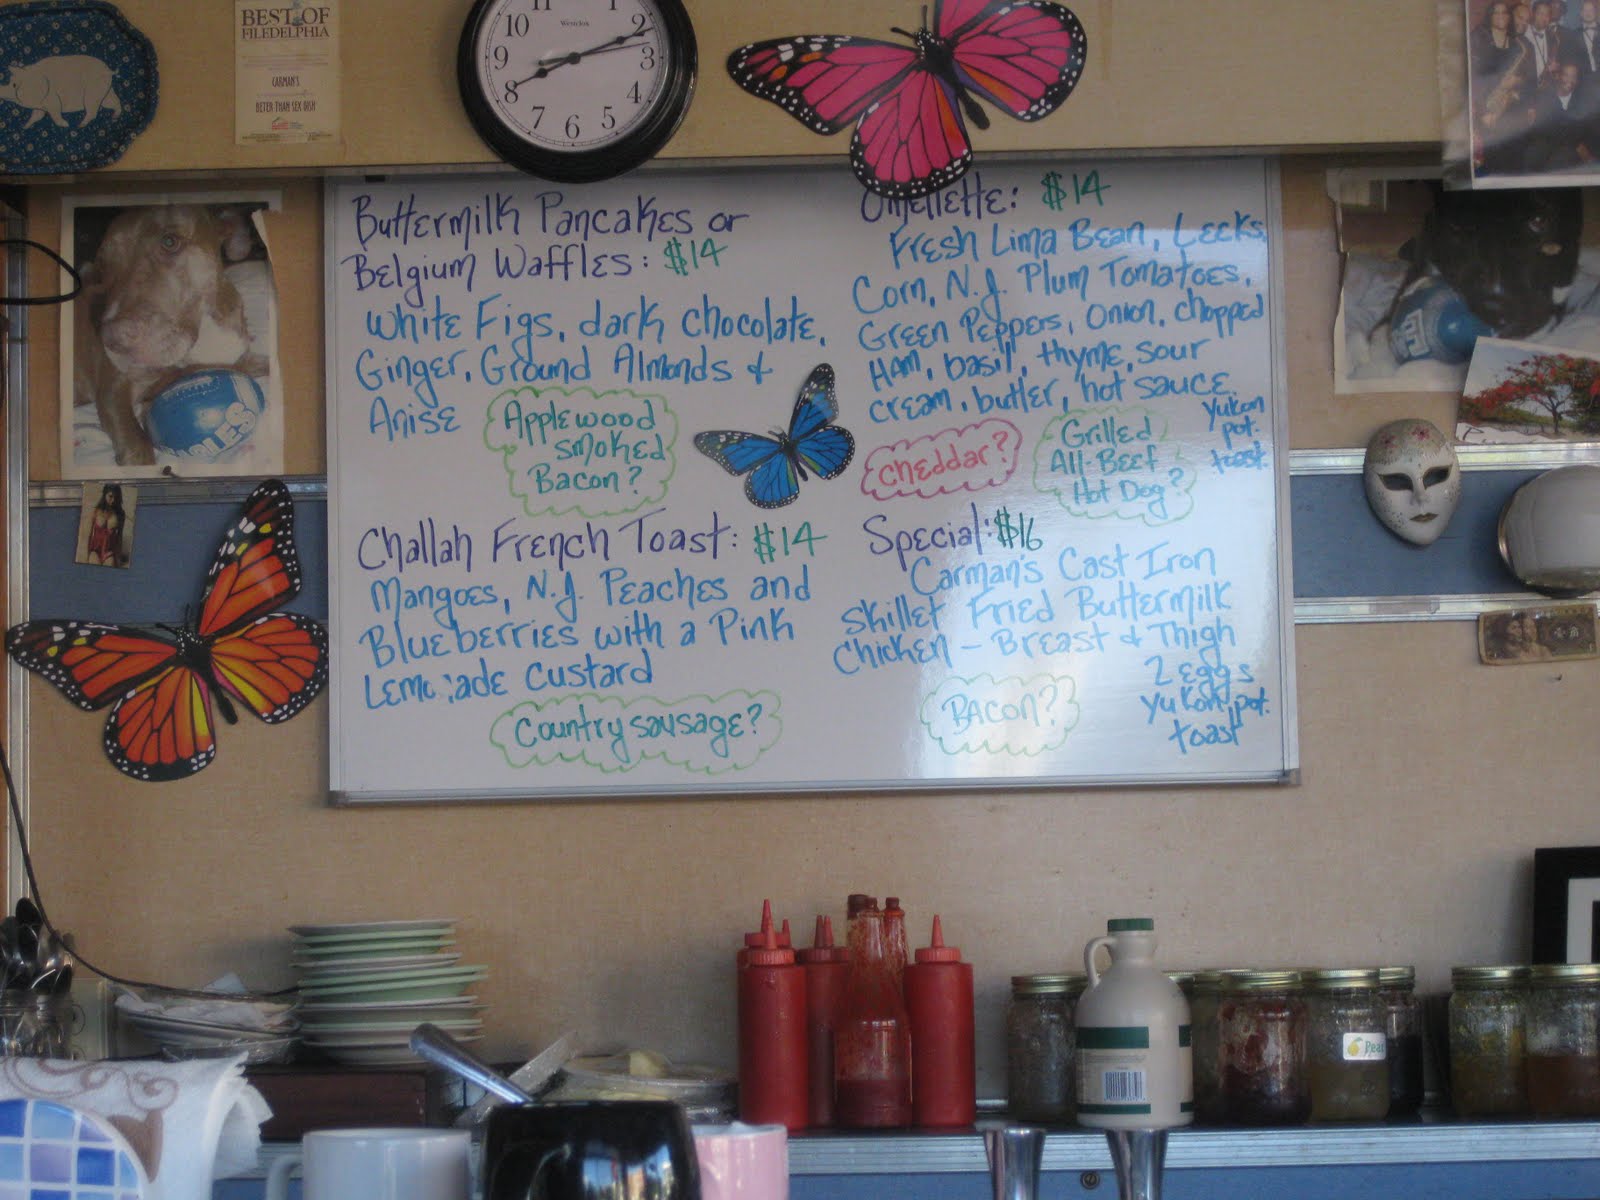 BEST OF
FILEDELPHIA
CARMAN'S
BETER THAN SEX DISH
10
9
8
7
6
5
4
3
2
Westclox
Buttermilk Pancakes or
Belgium Waffles: $14
White Figs, dark chocolate,
Ginger, Ground Almonds &
Anise
Applewood
smoked
Bacon?
Challah French Toast: $14
Mangoes, N.J. Peaches and
Blueberries with a Pink
Lemonade custard
Country sausage?
Omellette: $14
Fresh Lima Bean, Leeks,
Corn, N.J. Plum Tomatoes,
Green Peppers, onion, chopped
Ham, basil, thyme, sour
cream, butter, hot sauce
Yukon
pot.
toast.
cheddar?
Grilled
All-Beef
Hot Dog?
Special: $16
Carman's Cast Iron
Skillet Fried Buttermilk
Chicken - Breast & Thigh
2 eggs
Yukon pot.
toast
Bacon?
Pear